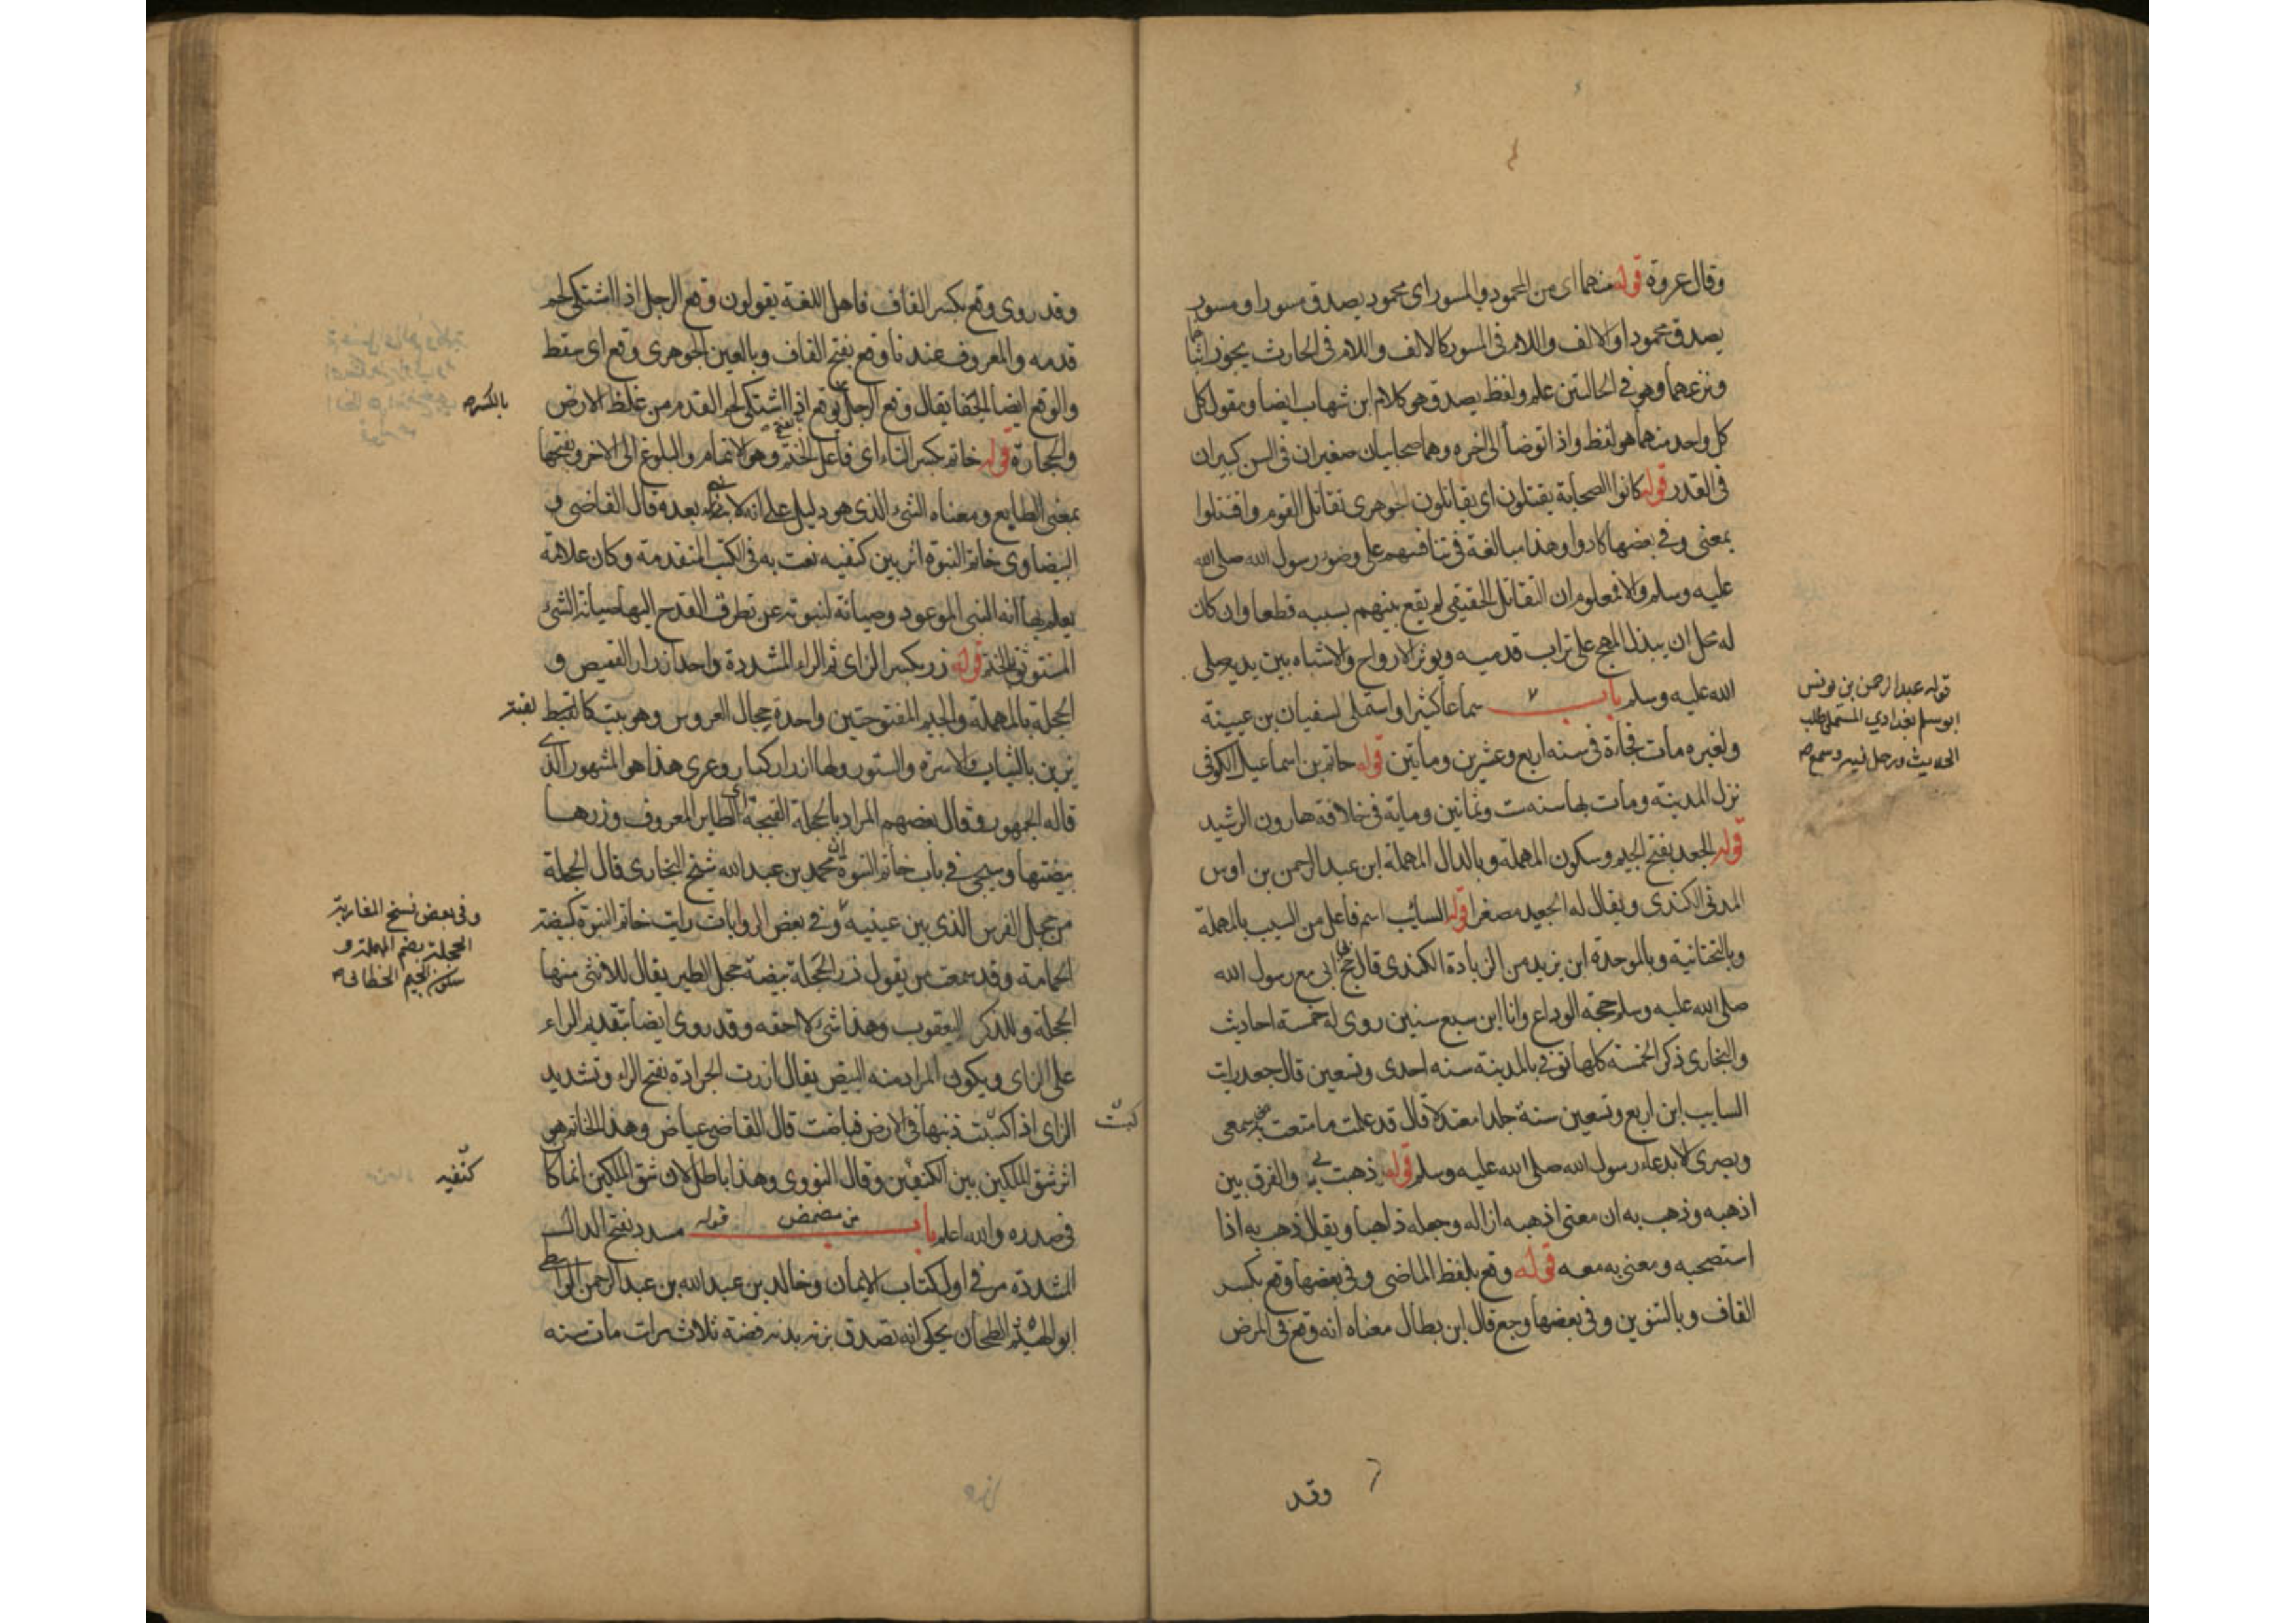 وقال عروة قوله منهما اى من المحمود والمسور اى محمود يصدق مسورا ومسور
يصدق محمودا والالف واللام فى المسور كالالف واللام فى الحارث يجوز اثباتها
ونزعهما وهو فى الحالتين علم ولفظ يصدق هو كلام ابن شهاب ايضا ومقول كل
كل واحد منهما هو لفظ واذا توضأ الى اخره وهما صحابيان صغيران فى السن كبيران
فى القدر قوله كانوا الصحابة يقتتلون اى يقاتلون الجوهرى تقاتل القوم واقتتلوا
بمعنى وفى بعضها كادوا وهذا مبالغة فى تنافسهم على وضوء رسول الله صلى الله
عليه وسلم والا فمعلوم ان التقاتل الحقيقى لم يقع بينهم بسببه قطعا وان كان
له محل ان يبذل المهج على تراب قدميه ويوثر الارواح والاشباه بين يديه صلى
الله عليه وسلم باب سماعا كثيرا واستملى لسفيان بن عيينة
ولغيره مات فجاءة فى سنه اربع وعشرين وماتين قوله حاتم بن اسماعيل الكوفى
نزل المدينه ومات بها سنه ست وثمانين وماية فى خلافه هارون الرشيد
قوله الجعد بفتح الجيم وسكون المهملة وبالدال المهملة ابن عبد الرحمن بن اوس
المدنى الكندى ويقال له الجعيد مصغرا قوله السائب اسم فاعل من السيب بالمهملة
وبالتحتانية وبالموحده ابن يزيد من الزيادة الكندى قال حج ابى مع رسول الله
صلى الله عليه وسلم حجة الوداع وانا ابن سبع سنين روى له خمسة احاديث
والبخارى ذكر الخمسة كلها توفى بالمدينة سنه احدى وتسعين قال جعد رايت
السايب ابن اربع وتسعين سنة جلدا معتدلا قال قد علمت ما متعت به سمعى
وبصرى الا بدعاء رسول الله صلى الله عليه وسلم قوله ذهبت بى والفرق بين
اذهبه وذهب به ان معنى اذهبه ازاله وجعله ذاهبا ويقال ذهب به اذا
استصحبه ومعنى به معه قوله وقع بلفظ الماضى وفى بعضها وقع بكسر
القاف وبالتنوين وفى بعضها وجع قال ابن بطال معناه انه وقع فى المرض
وقد
قوله عبد الرحمن بن يونس
ابو مسلم بغدادي المستملى طلب
الحديث ورحل فيه وسمع صح
وقد روى وقع بكسر القاف فاهل اللغة يقولون وقع الرجل اذا اشتكى لحم
قدمه والمعروف عندنا وقع بفتح القاف وبالعين الجوهرى وقع اى سقط
والوقع ايضا الحفا يقال وقع الرجل يوقع اذا اشتكى لحم القدم من غلظ الارض
والحجارة قوله خاتم بكسر التاء اى فاعل الختم وهو الاتمام والبلوغ الى الاخر وبفتحها
بمعنى الطابع ومعناه الشئ الذى هو دليل على انه لا نبى بعده وقال القاضى و
البيضاوى خاتم النبوة اثر بين كتفيه نعت به فى الكتب المتقدمة وكان علامة
يعلم بها انه النبى الموعود وصيانة لنبوته عن تطرق القدح اليها صيانة الشئ
المستوثق بالختم قوله زر بكسر الزاى ثم الراء المشددة واحد ازرار القميص و
الحجلة بالمهملة والجيم المفتوحتين واحدة حجال العروس وهو بيت كالقبة
يزين بالثياب والاسرة والستور ولها ازرار كبار وعرى هذا هو المشهور الذى
قاله الجمهور وقال بعضهم المراد بالحجلة القبجة اى الطاير المعروف وزرها
بيضتها وسيجى فى باب خاتم النبوة ان محمد بن عبد الله شيخ البخارى قال الحجلة
من حجل الفرس الذى بين عينيه وفى بعض الروايات رايت خاتم النبوة كبيضة
الحمامة وقد سمعت من يقول زر الحجلة بيضة حجل الطير يقال للانثى منها
الحجلة وللذكر اليعقوب وهذا شئ لا احقه وقد روى ايضا بتقديم الراء
على الزاى ويكون المراد منه البيض يقال ارزت الجرادة بفتح الراء وتشديد
الزاى اذا كبست ذنبها فى الارض فباضت قال القاضى عياض وهذا الخاتم هو
اثر شق الملكين بين الكتفين وقال النووى وهذا باطل لان شق الملكين انما كان
فى صدره والله اعلم باب من مضمض قوله مسدد بفتح الدال
المشددة مر فى اول كتاب الايمان وخالد بن عبد الله بن عبد الرحمن الواسطى
ابو الهيثم الطحان يحكى انه تصدق بزنة بدنه فضة ثلاث مرات مات سنه
بالكسر صح
وفى بعض نسخ المغاربة
الحجلة بضم المهملة و
سكون الجيم الخطابى صح
كتفيه